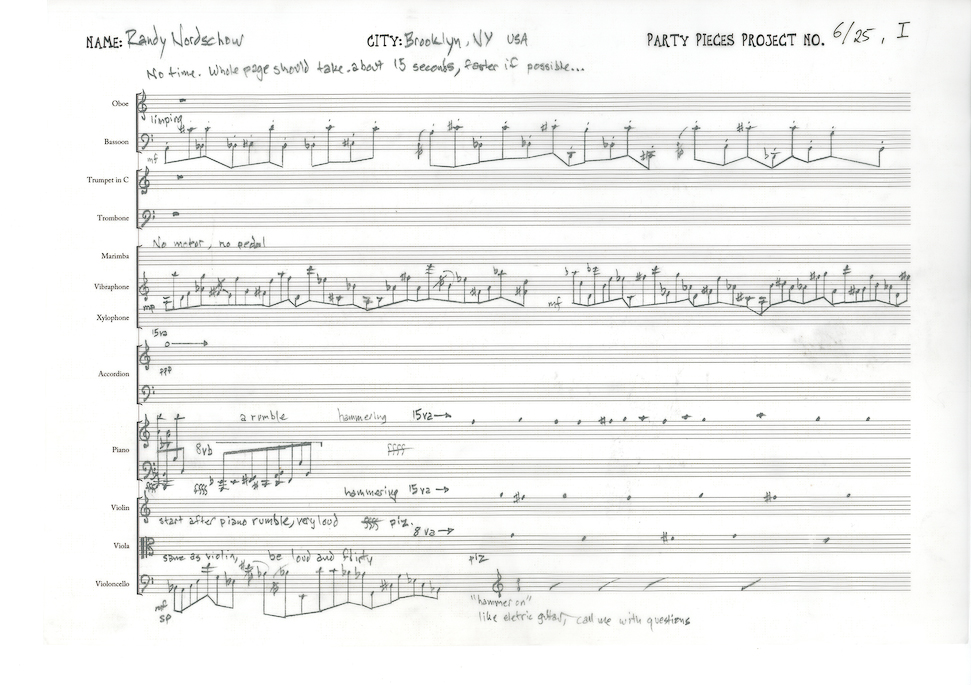 NAME: Randy Nordschow CITY: Brooklyn, NY USA PARTY PIECES PROJECT NO. 6/25, I
No time. Whole page should take about 15 seconds, faster if possible...
Oboe
limping
Bassoon
mf
Trumpet in C
Trombone
No motor, no pedal
Marimba
Vibraphone
mp mf
Xylophone
15va
ppp
Accordion
a rumble hammering 15va
Piano
8vb ffff
fff ffff
hammering 15va
Violin
start after piano rumble, very loud ffff piz.
8va
Viola
same as violin, be loud and flirty piz
Violoncello
mf
sp
"hammer on"
like eletric guitar, call me with questions